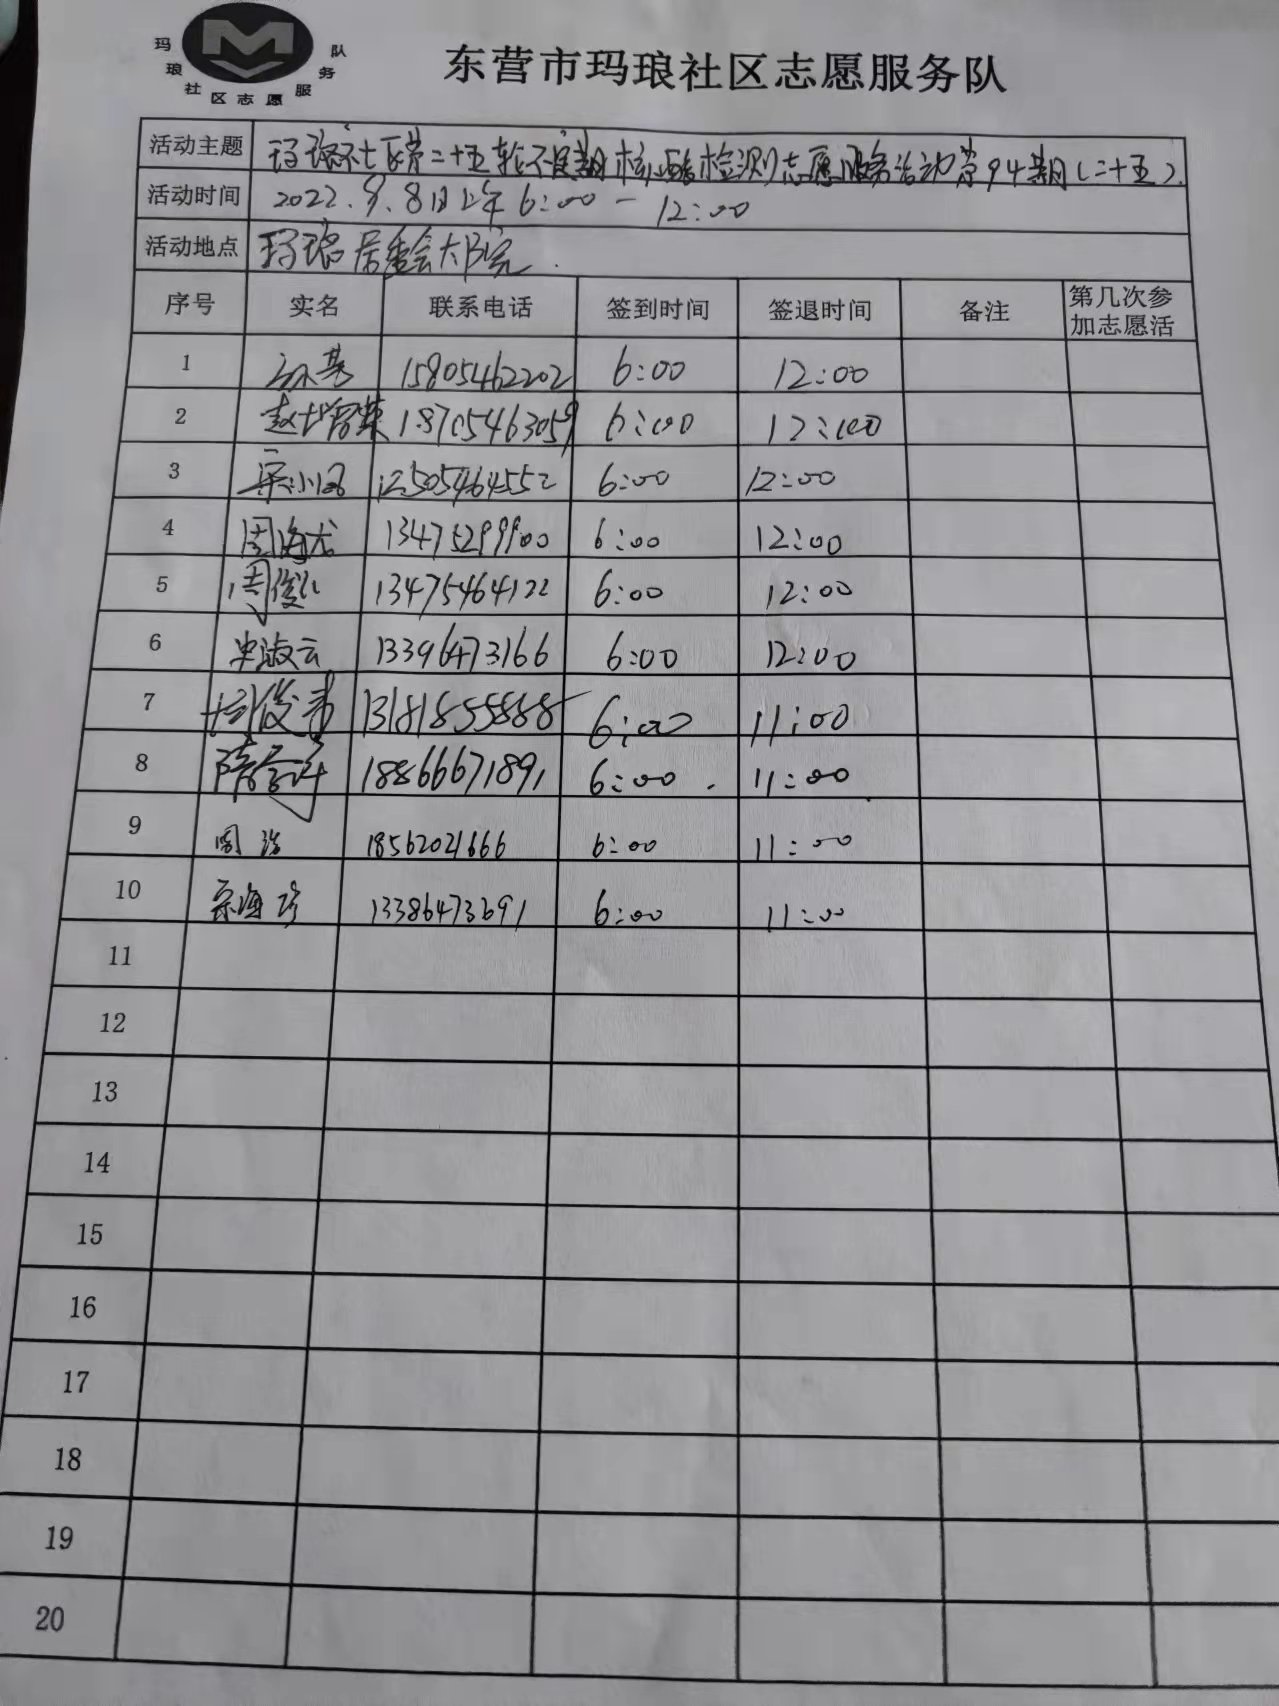 玛琅社区志愿服务队
东营市玛琅社区志愿服务队
活动主题 玛琅社区第二十五轮不定期核酸检测志愿服务活动第94期(二十五).
活动时间 2022.9.8日上午6:00-12:00
活动地点 玛琅居委会大院.
序号 实名 联系电话 签到时间 签退时间 备注 第几次参加志愿活
1 15805462202 6:00 12:00
2 18705463059 6:00 12:00
3 6:00 12:00
4 周海龙 13475299900 6:00 12:00
5 13475464122 6:00 12:00
6 史淑云 13396473166 6:00 12:00
7 13181855888 6:00 11:00
8 18866671891 6:00 11:00
9 周浩 18562021666 6:00 11:00
10 13386473691 6:00 11:00
11
12
13
14
15
16
17
18
19
20